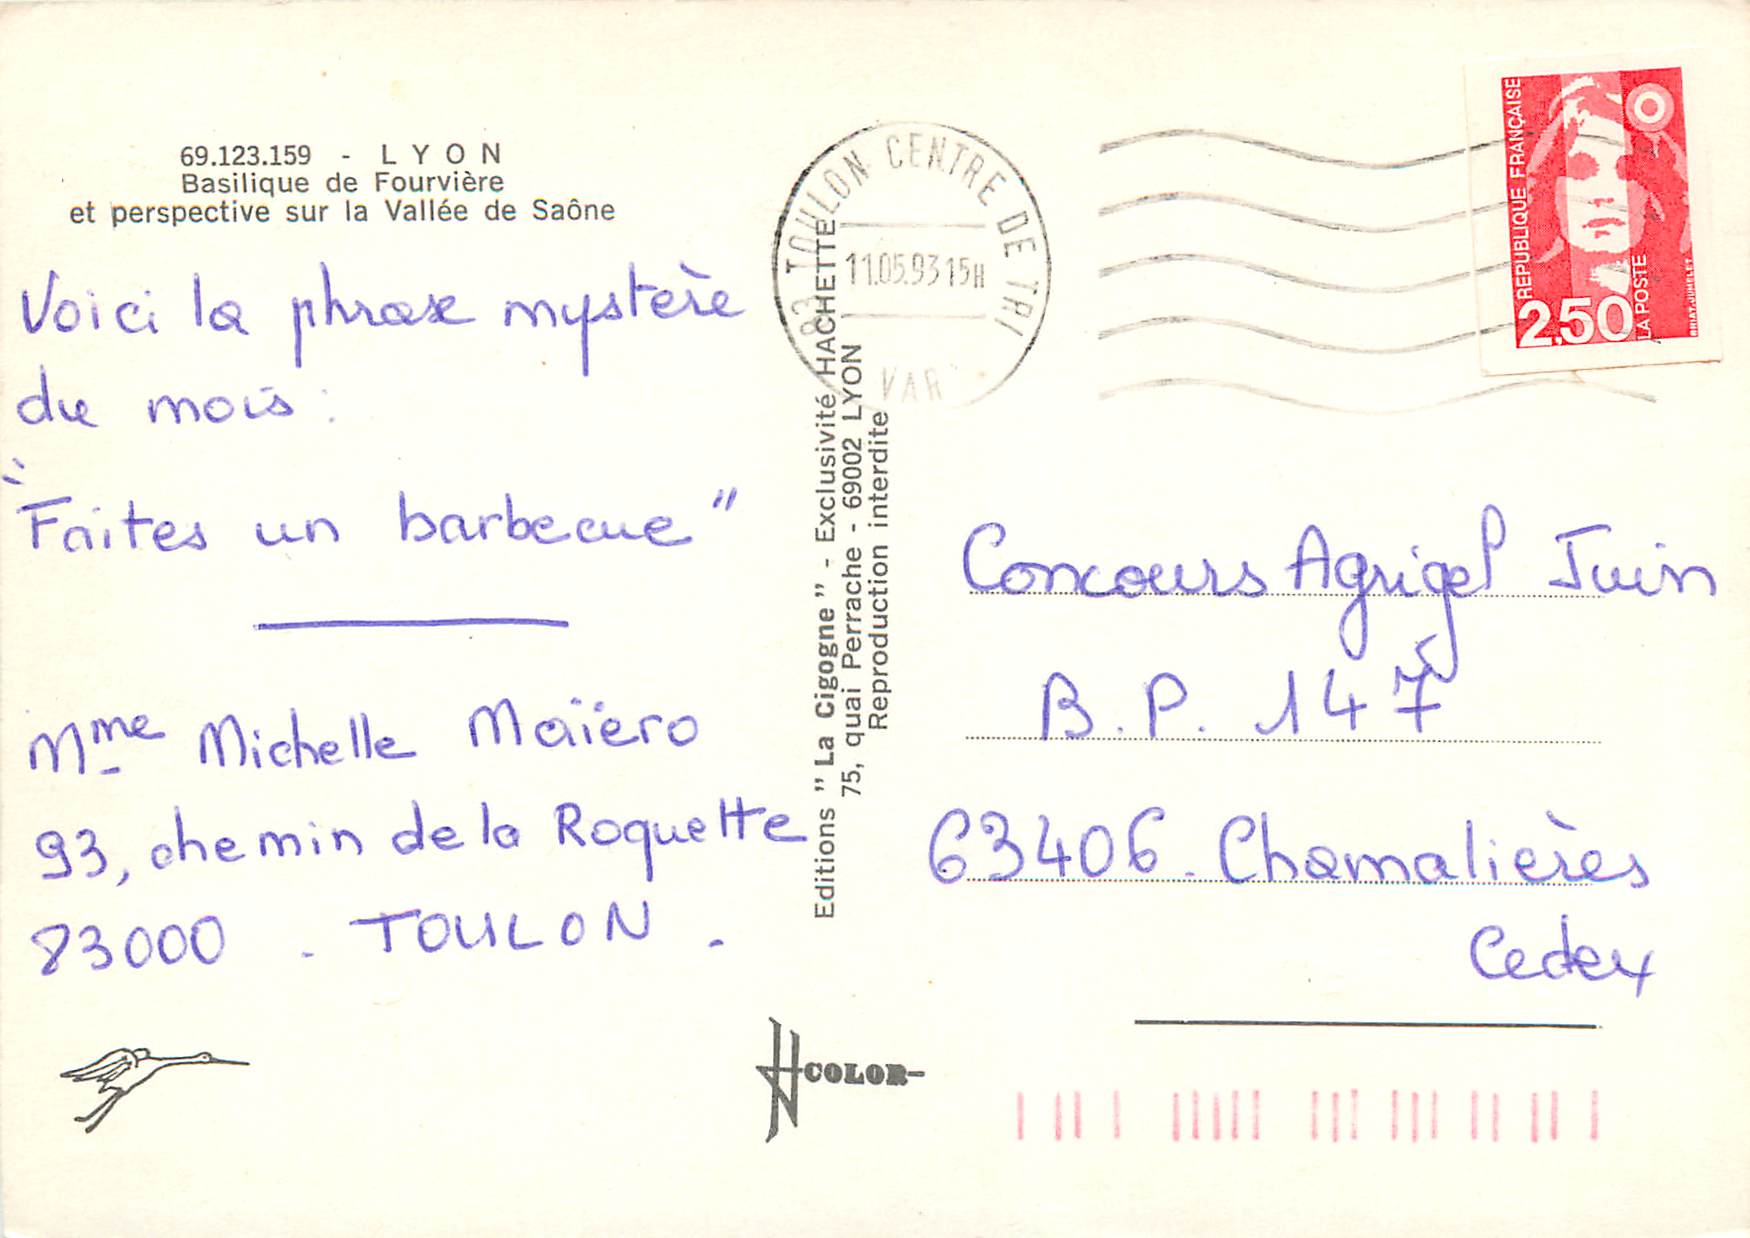 69.123.159 - LYON
Basilique de Fourvière
et perspective sur la Vallée de Saône
Voici la phrase mystère
du mois :
"Faites un barbecue"
Mme Michelle Maïero
93, chemin de la Roquette
83000 - TOULON.
Editions " La Cigogne " - Exclusivité HACHETTE
75, quai Perrache - 69002 LYON
Reproduction interdite
COLOR
83 TOULON CENTRE DE TRI
11.05.93 15H
VAR
REPUBLIQUE FRANÇAISE
2,50
LA POSTE
BRIAT-JUMELET
Concours Agrigel Juin
B.P. 147
63406. Chamalières
Cedex